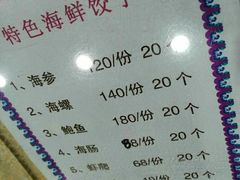 特色海鲜饺子
1、海参 120/份 20个
2、海螺 140/份 20个
3、鲍鱼 180/份 20个
4、海肠 88/份 20个
5、鲜虾 68/份 20个
10/份 20个